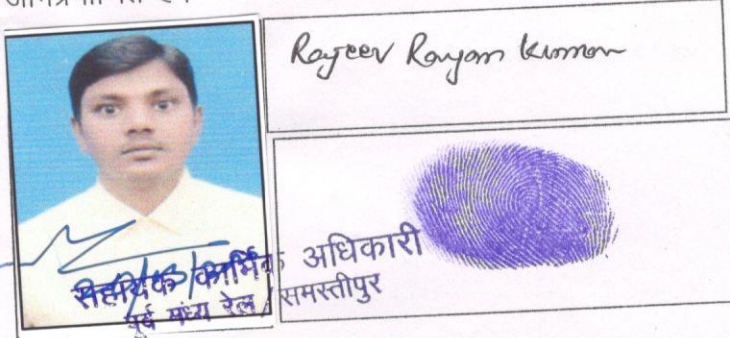 Rajeev Ranjan Kumar
सहायक कार्मिक अधिकारी
पूर्व मध्य रेल/समस्तीपुर